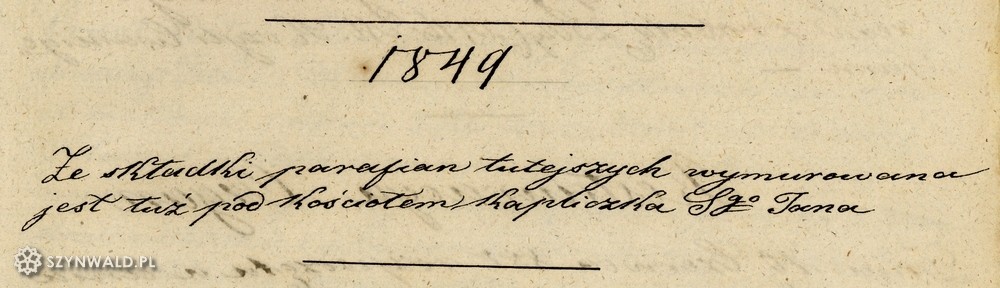 1849
Ze składki parafian tutejszych wymurowana
jest tuż pod kościołem kapliczka Sgo Jana
SZYNWALD.PL